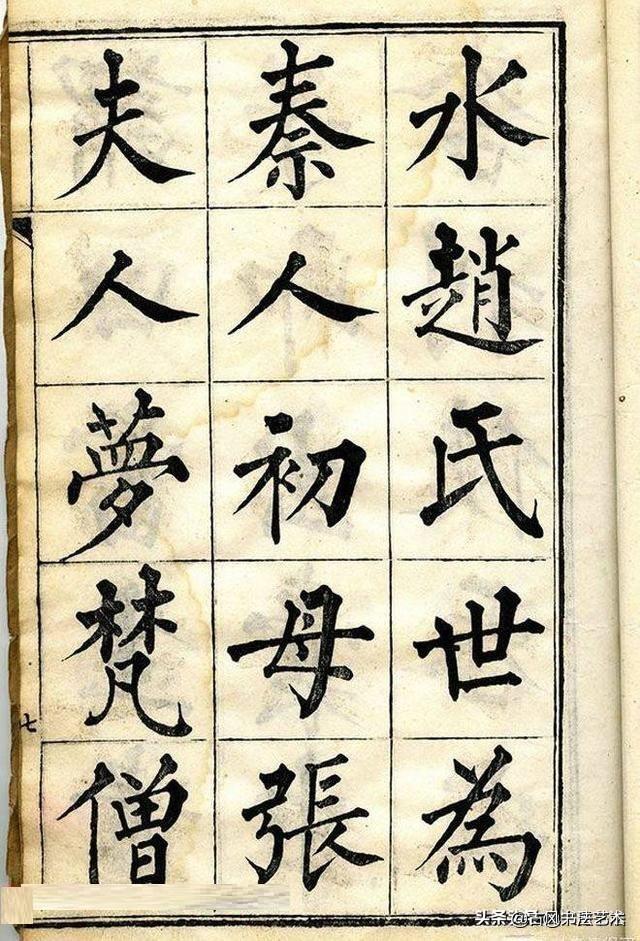 水趙氏世為
秦人初母張
夫人夢梵僧
七
头条@古风书法艺术